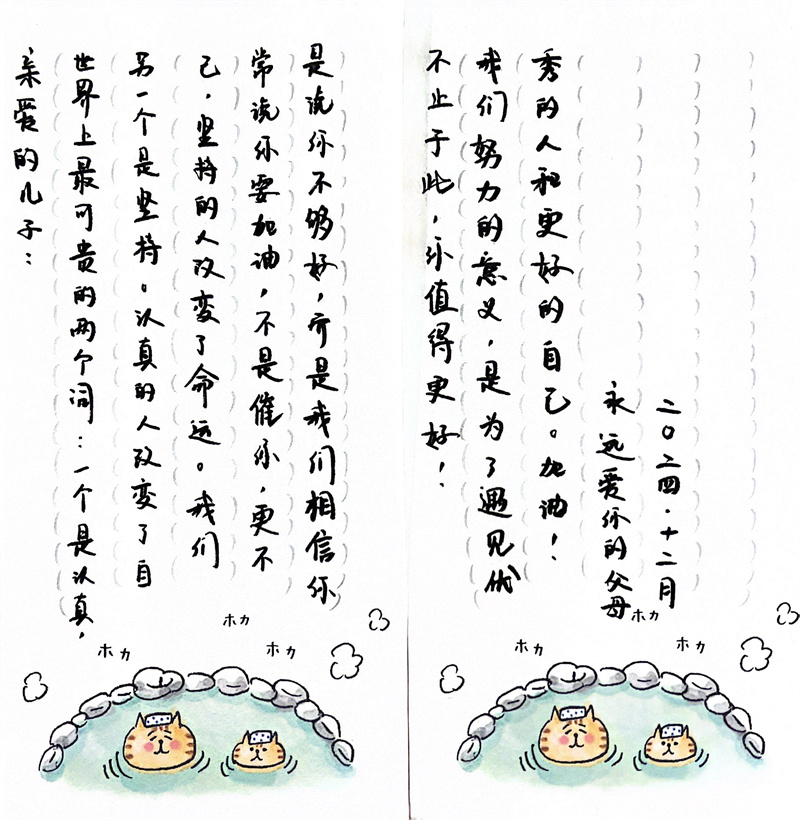 亲爱的儿子：
世界上最可贵的两个词：一个是认真，
另一个是坚持。认真的人改变了自
己，坚持的人改变了命运。我们
常说你要加油，不是催你，更不
是说你不够好，而是我们相信你
不止于此，你值得更好！
我们努力的意义，是为了遇见优
秀的人和更好的自己。加油！
永远爱你的父母
二〇二四.十二月
ホカ
ホカ
ホカ
ホカ
ホカ
ホカ